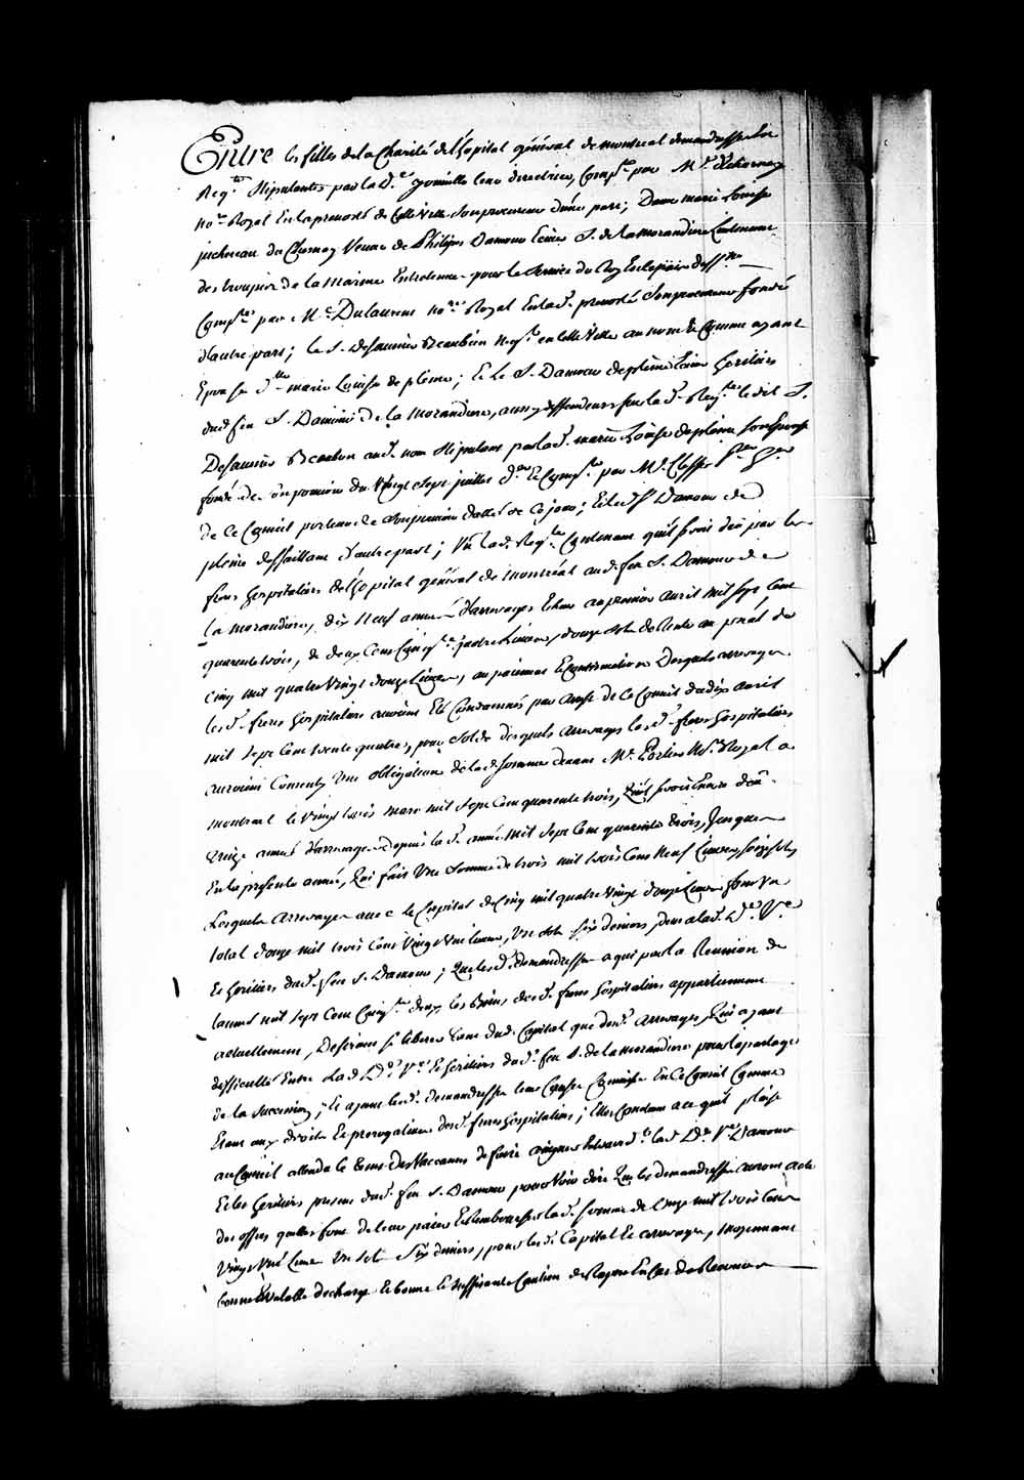 Entre les filles de la Charité de l'hopital général de montreal demanderesses En
Reqte. stipulantes par la De. youville leur directrice, Compte. par Me.
nore. Royal En la prevosté de Cette Ville son procureur d'une part; Dame marie Louise
jucherau du Chesnay Veuve de Philipes Damour Ecuier S. de la morandiere Lieutenant
des troupes de la marine Entretenue pour le service du Roy En ce païs deffse.
Compte. par Me. Dulaurens nore. Royal En lad. prevosté son procureur fondé
d'autre part; le S. Desauniers Beaubien Negt. en Cette Ville au nom Et Comme ayant
Epousé Dlle. marie Louise de pleine; Et Le S. Damour de pleine Ecuier heritiers
dud. feu S. Damour de la morandiere, aussy deffendeurs sur lad. Reqte. led. S.
Desauniers Beaubien aud. nom stipulant par lad. marie Louise de pleine son Epouse
fondée de son pouvoir du Vingt sept juillet der. Et Compte. par Me.
de Ce Conseil porteur de son pouvoir datté de Ce jour; Et led. S. Damour de
pleine deffaillant d'autre part; Vû lad. Reqte. Contenant qu'il seroit deû par les
freres hospitaliers de l'hopital général de montréal aud. feu S. Damour de
la morandiere, dix neuf années d'arrerages Echus au premier avril mil sept Cent
quarante trois, de deux Cent Cinqte. quatre Livres, douze sols de Rente au pnal de
Cinq mil quatre Vingt douze Livres, au paiement Et Continuation desquels arrerages
les d. freres hospitaliers auroient Eté Condamnés par arrest de Ce Conseil du dix avril
mil sept Cent trente quatre, pour solde desquels arrerages les d. freres hospitaliers
auroient Consenty Une obligation de lad. somme devant Me. Porlier Nre. Royal a
montreal le Vingt trois mars mil sept Cent quarante trois, qu'il seroit Encore deû
treize années d'arrerages depuis lad. année mil sept Cent quarante trois, jusques
En la presente année, Qui fait Une somme de trois mil trois Cens Neuf Livres, seize sols
Lesquels arrerages avec le Capital de Cinq mil quatre Vingt douze Livres font Un
total d'onze mil trois Cens Vingt Une livres, Un sols six deniers, deûs a lad. De. Ve.
Et heritiers dud. feu S. Damour; Que les d. demanderesses a qui par la Reunion de
lannée mil sept Cent Cinqte. deux les Biens des d. freres hospitaliers appartiennent
actuellement, Desirent se liberer tant dud. Capital que des d. arrerages, Qui ayant
difficulté Entre Lad. De. Ve. Et heritiers dud. feu S. de la morandiere pour le partage
de la succession; Et ayant les d. demanderesses leur Causes Commises En Ce Conseil Comme
Etant aux droits Et prerogatives des d. freres hospitaliers; Elles Concluent a ce qu'il plaise
au Conseil attendu le tems des Vaccances de faire assigner Lad. De. Ve. Damour
Et les heritiers presens dud. feu S. Damour pour Voir dire Que les demanderesses auront acte
des offres qu'elles font de leur païer Et rembourser lad. somme de onze mil trois Cens
Vingt Une Livres Un sols Six deniers, pour les d. Capital Et arrerages, moyennant
bonne Et Valable decharge Et bonne Et suffisante Caution de Raport En Cas de